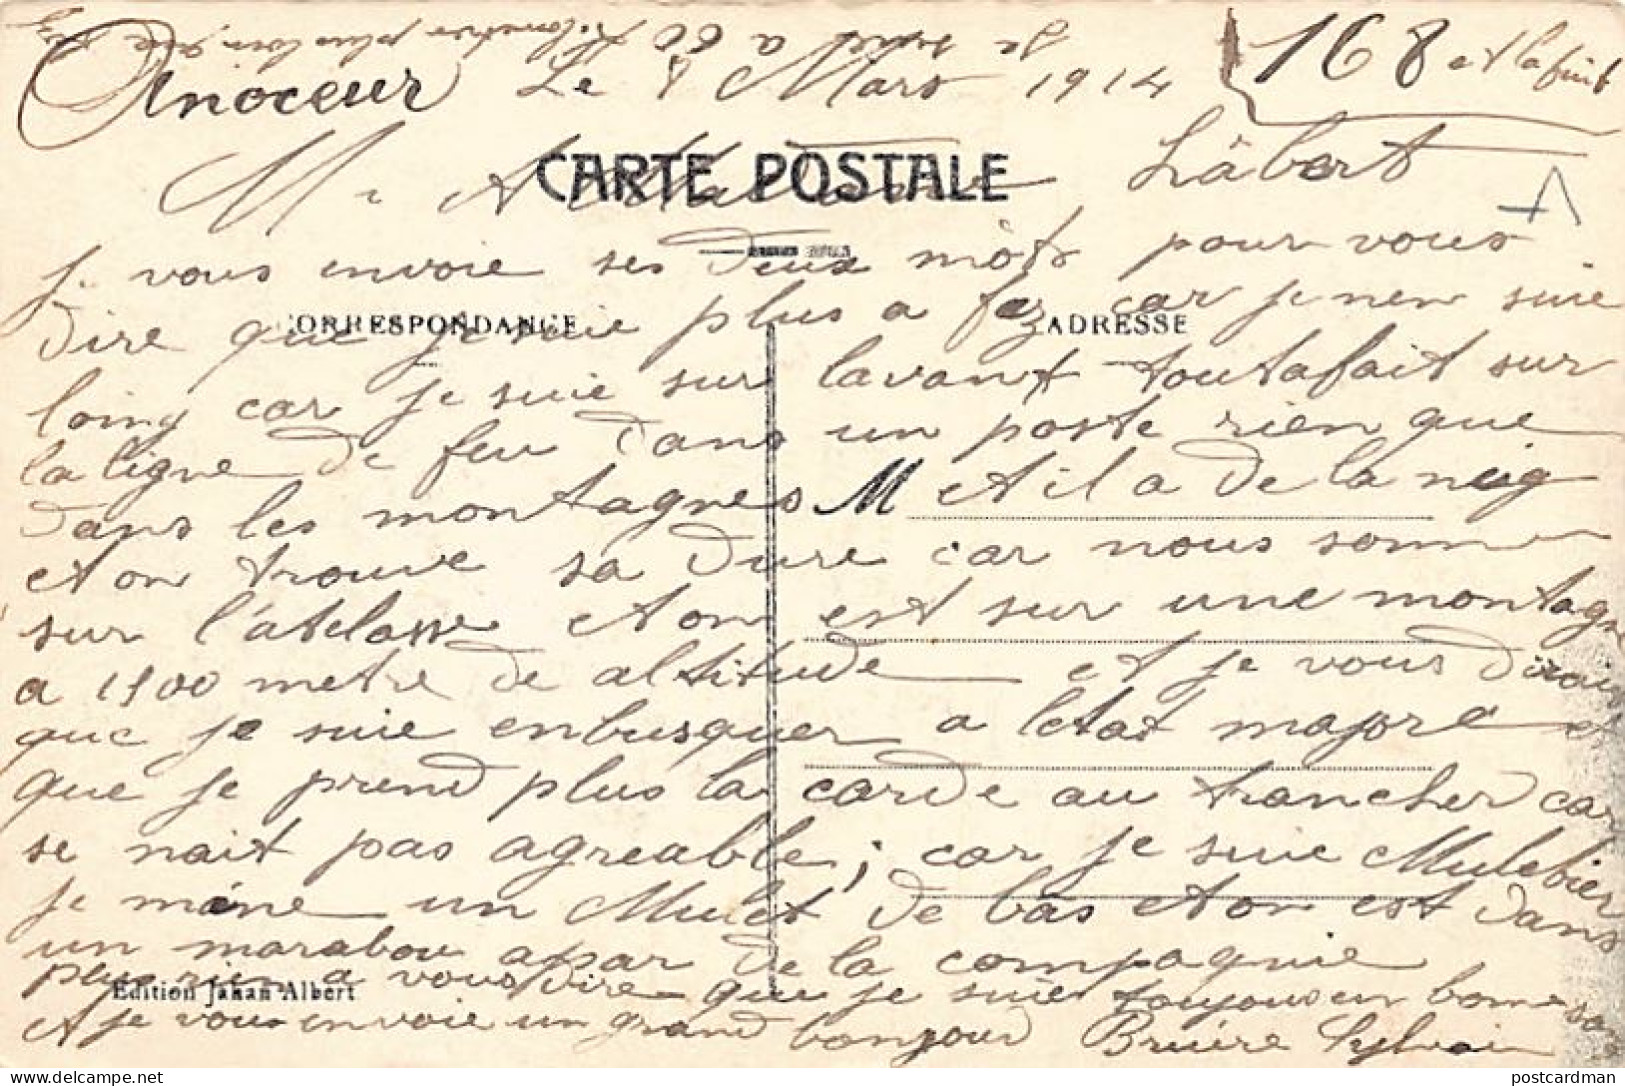 je suit a 60 kilomètre plus loin que Fez
Anoceur Le 8 Mars 1914
168 et la fuit
CARTE POSTALE
Mr A Labert
je vous envoie ses deux môts pour vous
dire que je suie plus a fez car je nen suie
CORRESPONDANCE
ADRESSE
loing car je suie sur lavant toutafait sur
la ligne de feu dans un poste rien que
dans les montagnes M et il a de la neig
et on trouve sa dure car nous somme
sur l'atelasse et on est sur une montagne
a 1500 metre de altitude et je vous dirais
que je suie enbusquer a letat majore et
que je prend plus la carde au trancher car
se nait pas agreable ; car je suie Mulebier
je méne un Mulet de bas et on est dans
un marabou apar de la compagnie
plus rien a vous dire que je suie toujours en bonne san
Edition Jahan Albert
et je vous envoie un grand bonjour Bruére Sylvain
postcardman